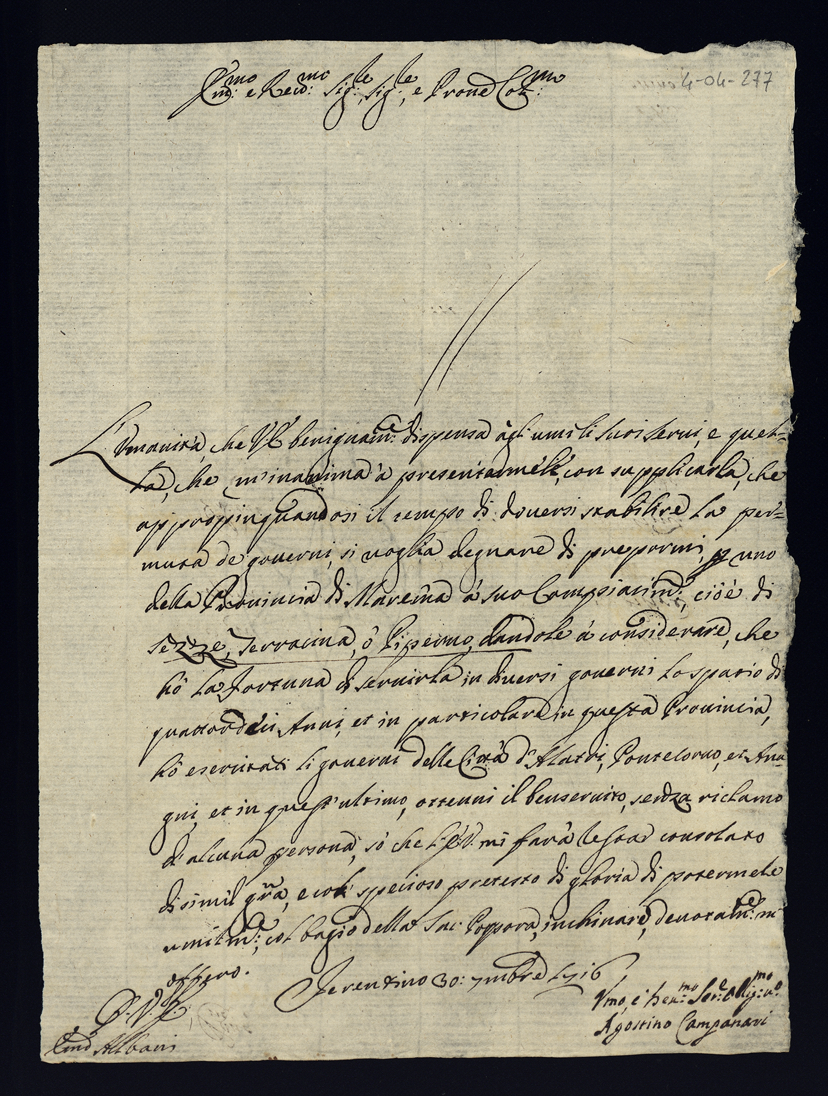 Em:mo e Reud:mo Sig:re, Sig:re, e Prone Col:mo
4-04-277
L'Umanità, che V.E. benignam:te dispensa agl'umili suoi serui, e quel=
la, che m'inanima à presentarmele, con supplicarla, che
appropinquandosi il tempo di douersi stabilire la per=
muta de gouerni, si uoglia degnare di propormi, p uno
della Prouincia di Marema à suo Compiacim:to, cioè di
Sezze, Terracina, ò Piperno, dandole à considerare, che
hò la fortuna di seruirla in diuersi gouerni lo spatio di
quattordici Anni, et in particolare in questa Prouincia,
hò esercitati li gouerni delle Città d'Alatri, Pontecoruo, et Ana
gni, et in quest'ultimo, ottenni il benseruito, senza richiamo
di alcuna persona, sò che l'E.V. mi farà restar consolato
di simil gra, e col specioso pretesto di gloria di potermele
umilm:te, col bagio della Sac: Porpora, inchinare, deuotam:te m'
offero.
Ferentino 30: 7mbre 1716
D. V. E.
Vmo, e deu:mo Ser:e Oblig:mo
Agostino Campanari
Em:o Albani